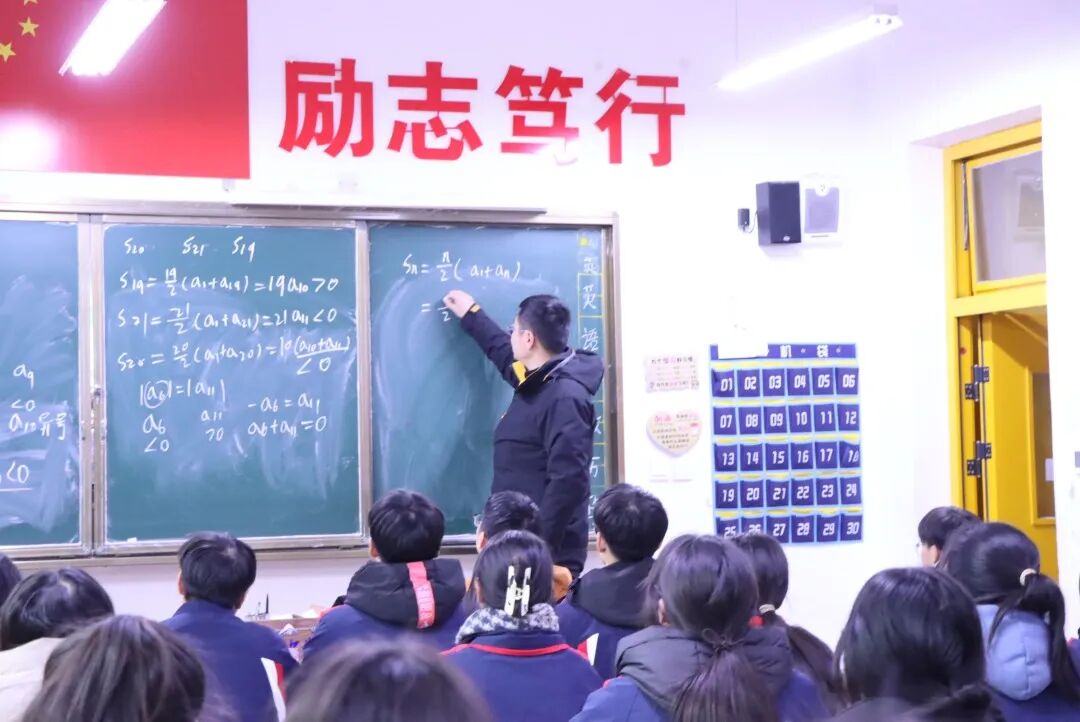 励志笃行
S20 S21 S19
S19 = 19/2 (a1+a19) = 19a10 > 0
S21 = 21/2 (a1+a21) = 21a11 < 0
S20 = 20/2 (a1+a20) = 10(a10+a11)
< 0
|a6| = |a11|
a6 a11 -a6 = a11
< 0 > 0 a6+a11 = 0
a9
< 0
a10 异号
< 0
Sn = n/2 (a1+an)
= /2
英
语
机 袋
01 02 03 04 05 06
07 08 09 10 11 12
13 14 15 16 17 18
19 20 21 22 23 24
25 26 27 28 29 30